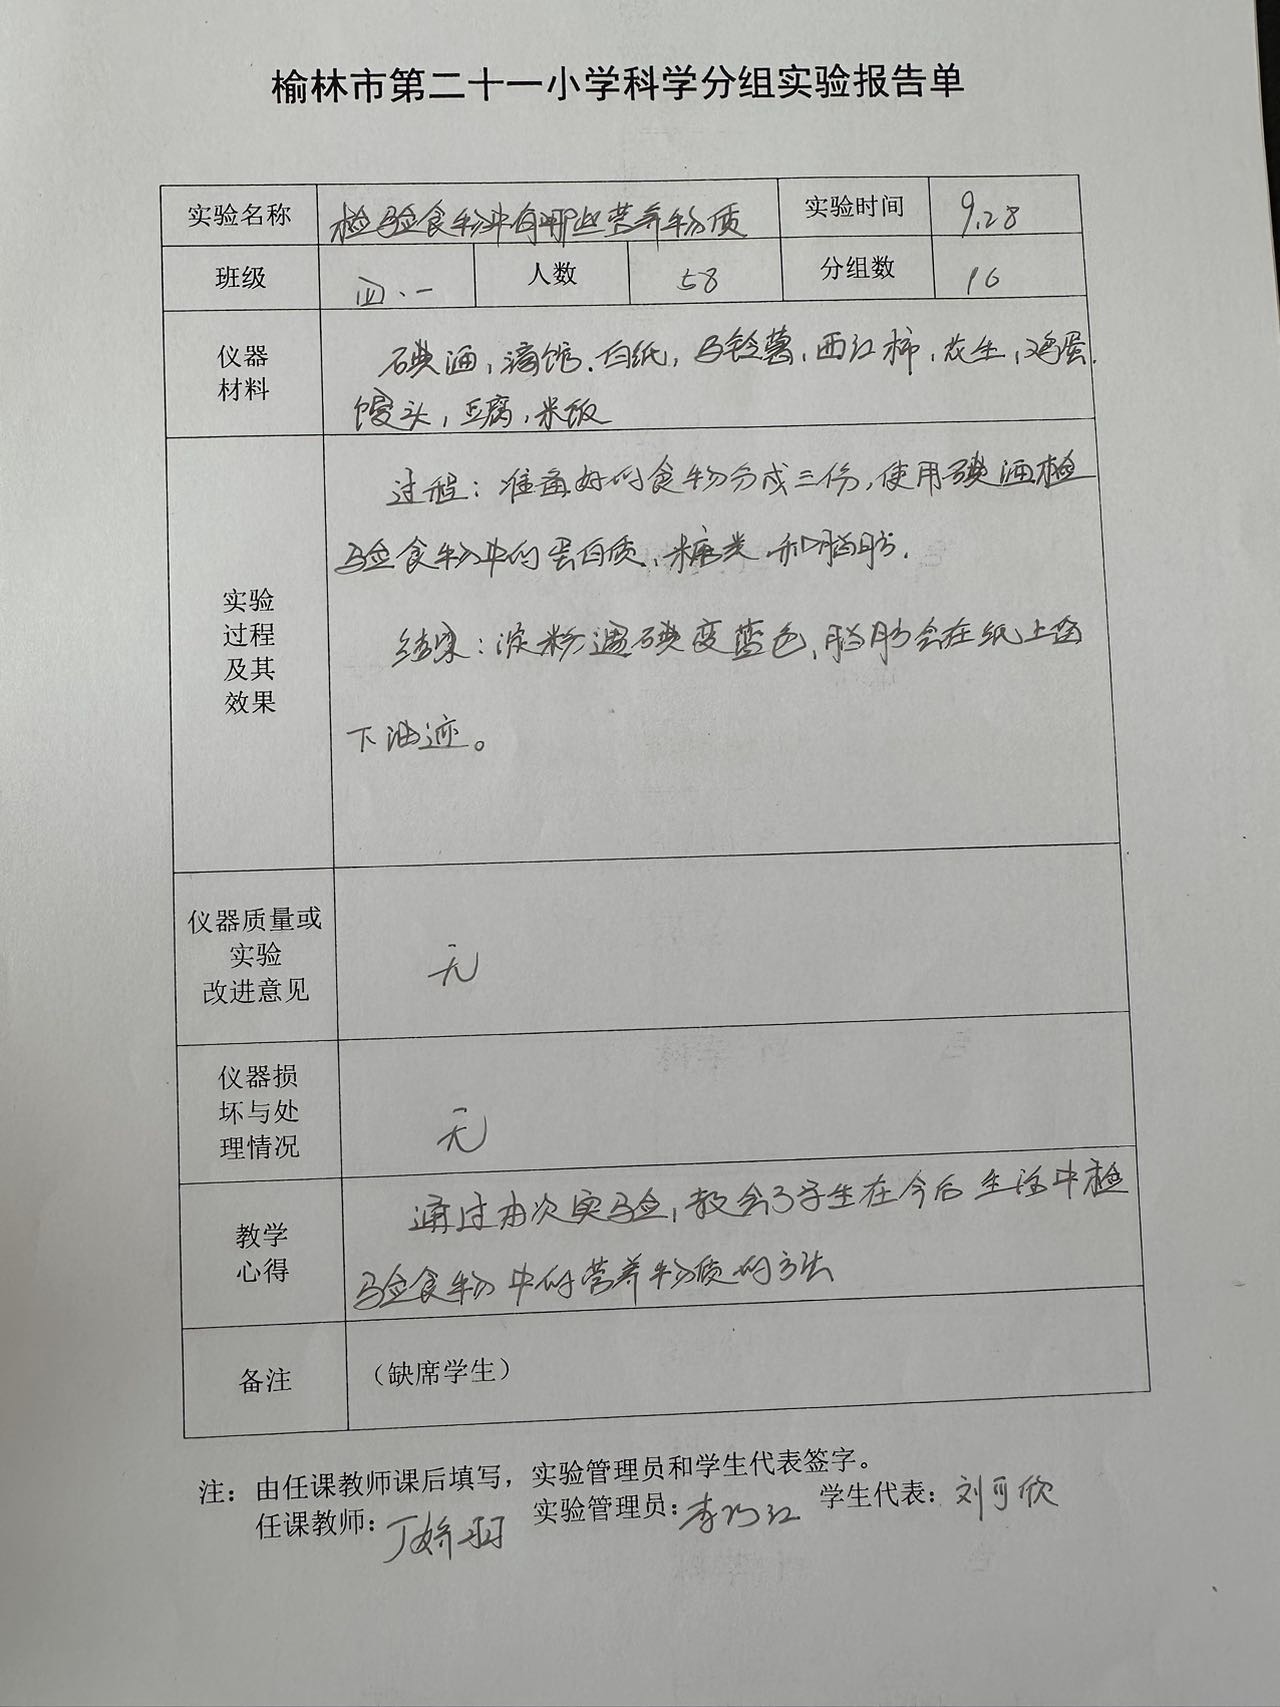 榆林市第二十一小学科学分组实验报告单
实验名称 检验食物中有哪些营养物质 实验时间 9.28
班级 四.一 人数 58 分组数 16
仪器
材料
碘酒,滴馆.白纸,马铃薯,西红柿,花生,鸡蛋.
馒头,豆腐,米饭
实验
过程
及其
效果
过程:准备好的食物分成三份,使用碘酒检
验食物中的蛋白质、糖类和脂肪.
结果:淀粉遇碘变蓝色,脂肪会在纸上留
下油迹。
仪器质量或
实验
改进意见
无
仪器损
坏与处
理情况
无
教学
心得
通过本次实验,教会了学生在今后生活中检
验食物中的营养物质的方法
备注 (缺席学生)
注:由任课教师课后填写,实验管理员和学生代表签字。
任课教师:丁娇羽 实验管理员:李巧红 学生代表:刘可欣